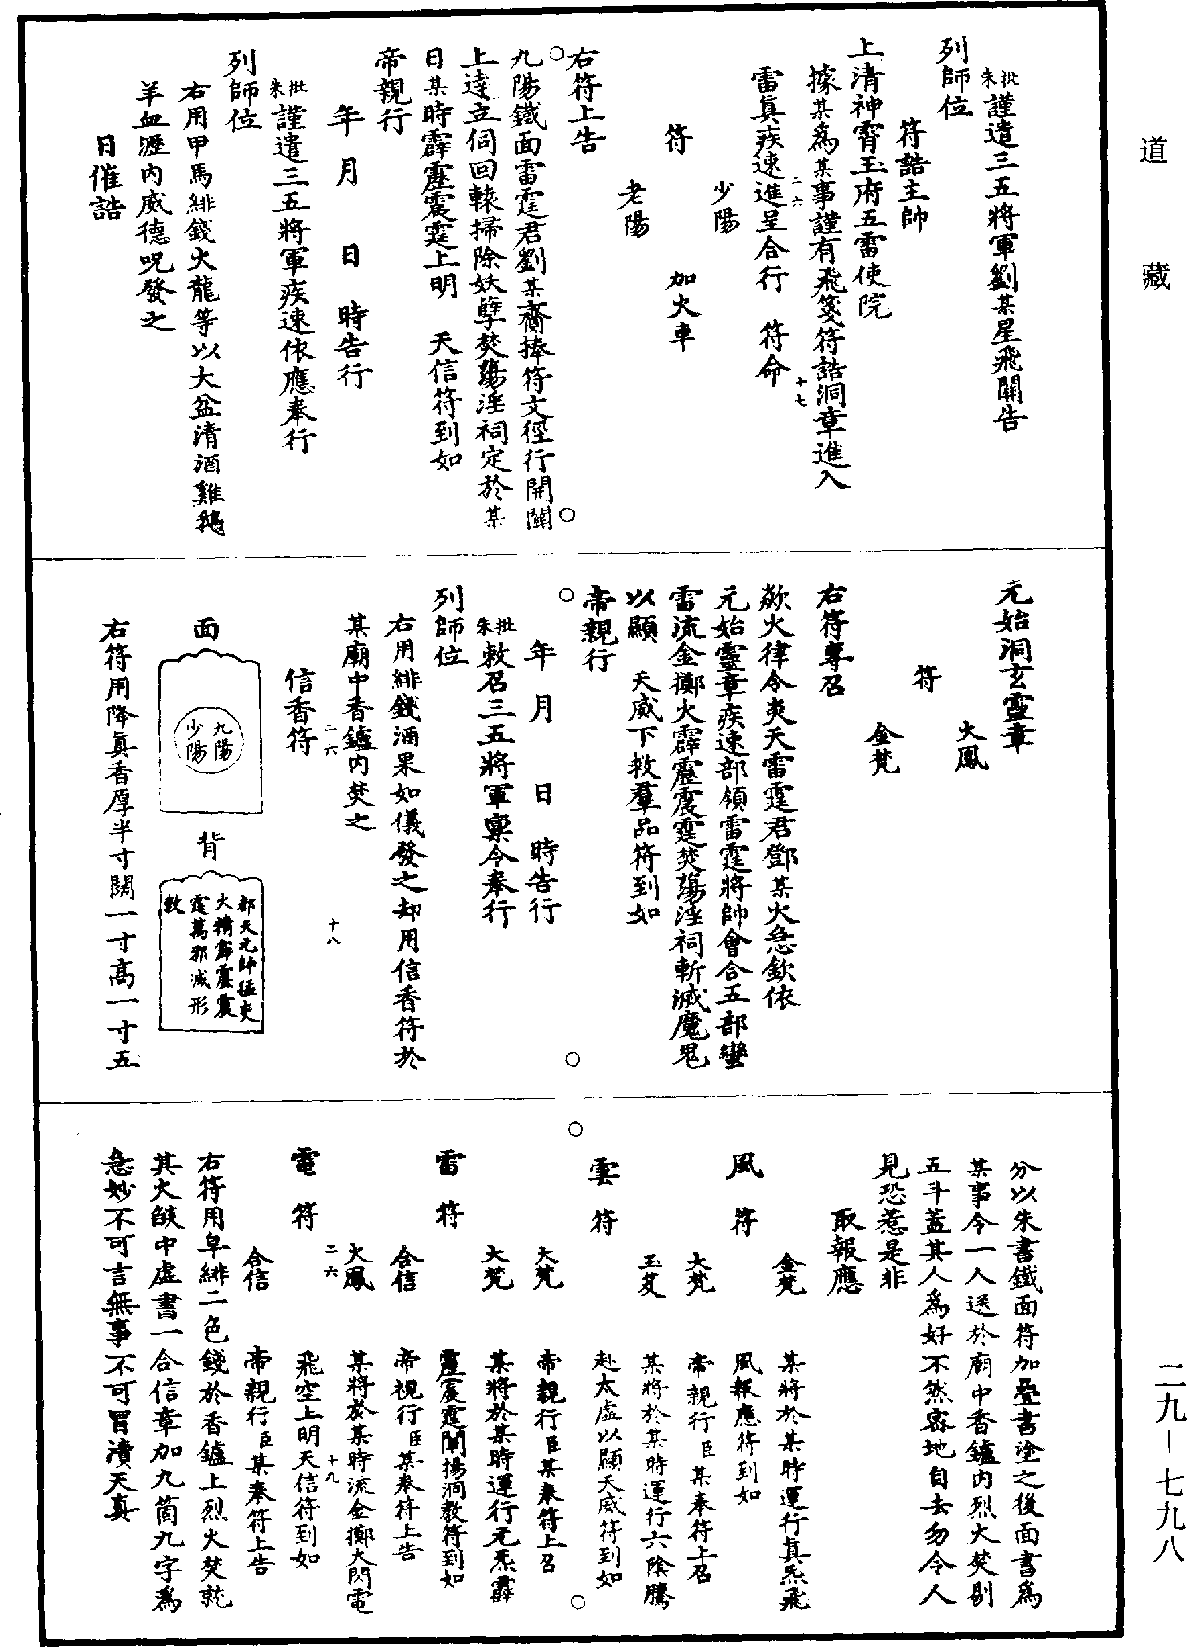 道藏
批朱謹遣三五將軍劉某星飛關告
列師位
符誥主帥
上清神霄玉府五雷使院
據某爲某事謹有飛箋符誥洞章進入
二六
十七
雷眞疾速進呈合行　符命
少陽
符　加火車
老陽
右符上告
九陽鐵面雷霆君劉某齎捧符文徑行開闡
上達立伺回轅掃除妖孽焚蕩淫祠定於某
日某時霹靂震霆上明　天信符到如
帝親行
年　月　日　時告行
批朱謹遣三五將軍疾速依應奉行
列師位
右用甲馬緋錢火龍等以大盆清酒雞鵝
羊血瀝內威德呪發之
日催誥
元始洞玄靈章
火鳳
符
金梵
右符專召
欻火律令炎天雷霆君鄧某火急欽依
元始靈章疾速部領雷霆將帥會合五部蠻
雷流金擲火霹靂震霆焚蕩淫祠斬滅魔鬼
以顯　天威下救羣品符到如
帝親行
年　月　日　時告行
批朱敕召三五將軍稟令奉行
列師位
右用緋錢酒果如儀發之却用信香符於
某廟中香鑪內焚之
二六
十八
信香符
面
九陽
少陽
背
都天元帥猛吏
大精霹靂震
霆萬邪滅形
敕
右符用降眞香厚半寸闊一寸高一寸五
分以朱書鐵面符加疊書塗之後面書爲
某事令一人送於廟中香鑪內烈火焚剔
五斗蓋其人爲好不然密地自去勿令人
見恐惹是非
取報應
金梵　某將於某時運行眞炁飛
風符　風報應符到如
大梵　帝親行臣某奉符上召
玉芝　某將於某時運行六陰騰
雲符　赴太虛以顯天威符到如
大梵　帝親行臣某奉符上召
大梵　某將於某時運行元炁霹
雷符　靂震霆闡揚洞敕符到如
合信　帝視行臣某奉符上告
火鳳　某將於某時流金擲火閃電
二六
十九
電符　飛空上明天信符到如
合信　帝親行臣某奉符上告
右符用皁緋二色錢於香鑪上烈火焚就
其火燄中虛書一合信章加九箇九字爲
急妙不可言無事不可冒瀆天真
二九－七九八